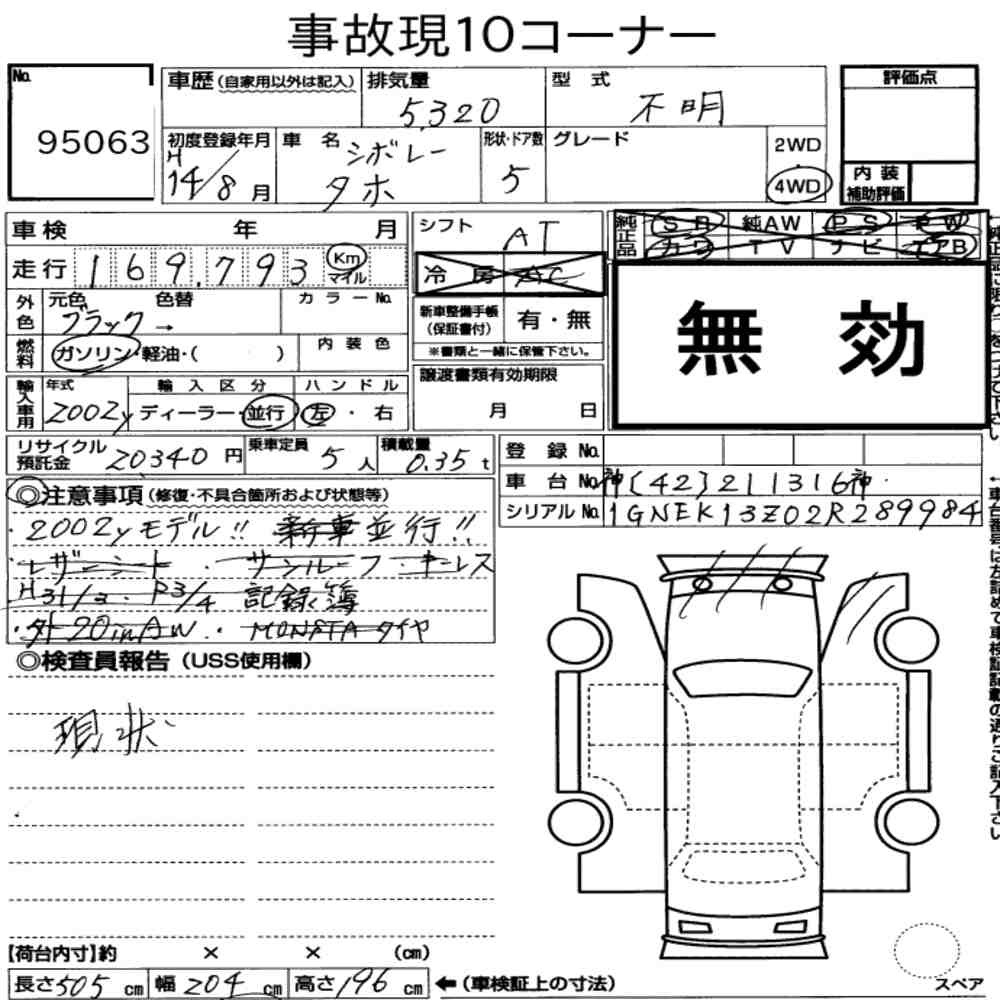 事故現10コーナー
No. 95063
車歴(自家用以外は記入) 排気量 5,320 型式 不明 評価点
初度登録年月 H14/8月 車名 シボレー タホ 形状・ドア数 5 グレード 2WD 4WD 内装補助評価
車検 年 月 シフト AT 純正品 SR 純AW PS PW
カワ TV ナビ エアB
走行 169,793 Km マイル 冷房 AC
外色 元色 ブラック→ 色替 カラーNo. 新車整備手帳(保証書付) 有・無
無効
燃料 ガソリン・軽油・( ) 内装色 ※書類と一緒に保管下さい。
輸入車用 年式 2002y 輸入区分 ディーラー・並行 ハンドル 左・右 譲渡書類有効期限 月 日
リサイクル預託金 20,340円 乗車定員 5人 積載量 0.35t 登録No.
車台No. 神[42]211316神
シリアルNo. 1GNEK13Z02R289984
◎注意事項(修復・不具合箇所および状態等)
・2002yモデル!! 新車並行!!
・レザーシート ・サンルーフ ・キーレス
H31/3・R3/4 記録簿
・外20inAW ・MONSTAタイヤ
◎検査員報告(USS使用欄)
現状
【荷台内寸】約 × × (cm)
長さ505cm 幅204cm 高さ196cm ←(車検証上の寸法)
スペア
←車台番号は左詰めで車検証記載の通りご記入下さい